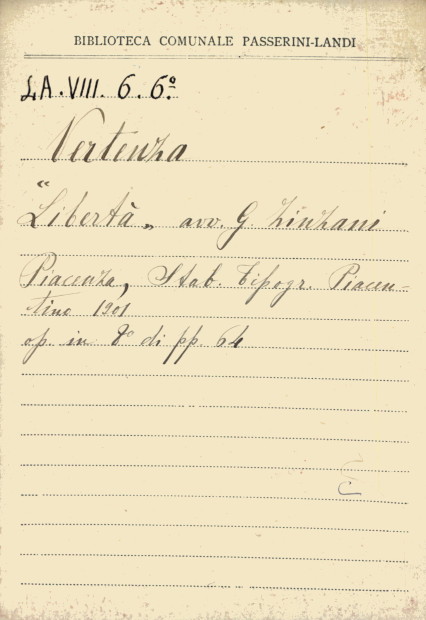 BIBLIOTECA COMUNALE PASSERINI-LANDI
LA.VIII. 6. 6º
Vertenza
"Libertà„ avv. G Zinzani
Piacenza, Stab. Tipogr. Piacen-
tino 1901
op. in 8º di pp. 64